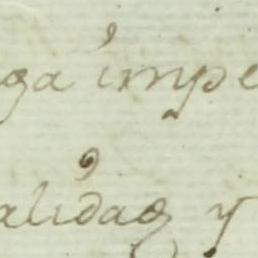 ga impe
alidad y